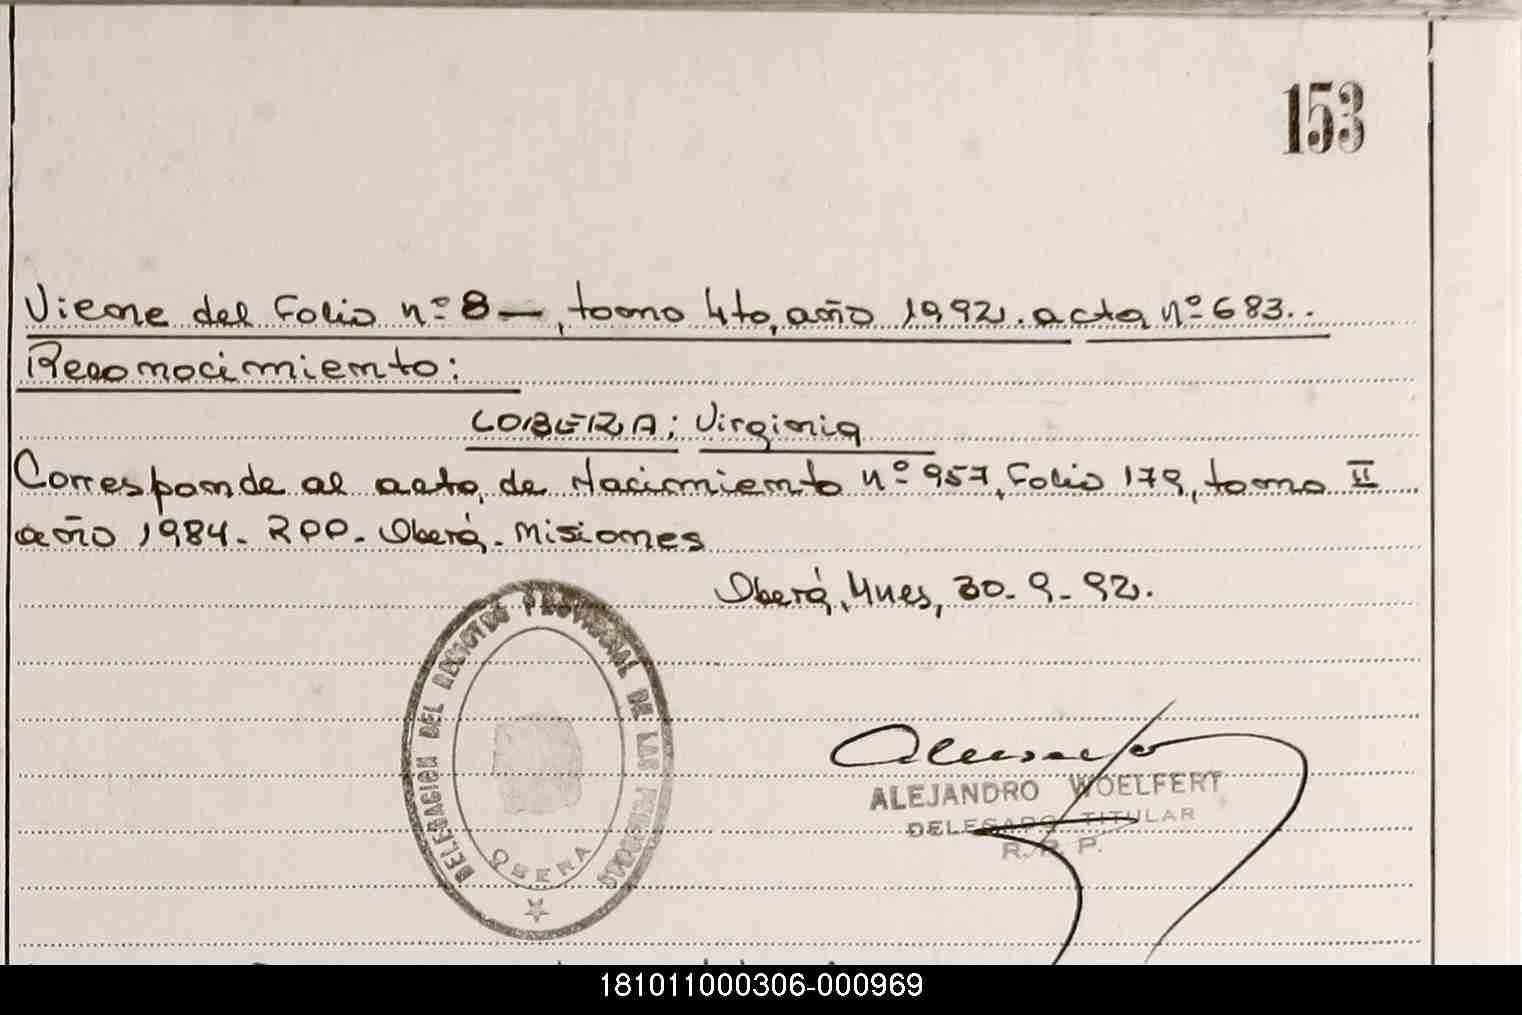 153
Viene del Folio nº 8 —, tomo 4to, año 1992. acta nº 683..
Reconocimiento:
LOBERA; Virginia
Corresponde al acta de Nacimiento nº 957, Folio 179, tomo II
año 1984. RPP. Oberá. Misiones
Oberá, Mnes, 30-9-92.
DELEGACION DEL REGISTRO PROVINCIAL DE LAS PERSONAS
OBERA
ALEJANDRO WOELFERT
DELEGADO TITULAR
R. P. P.
181011000306-000969